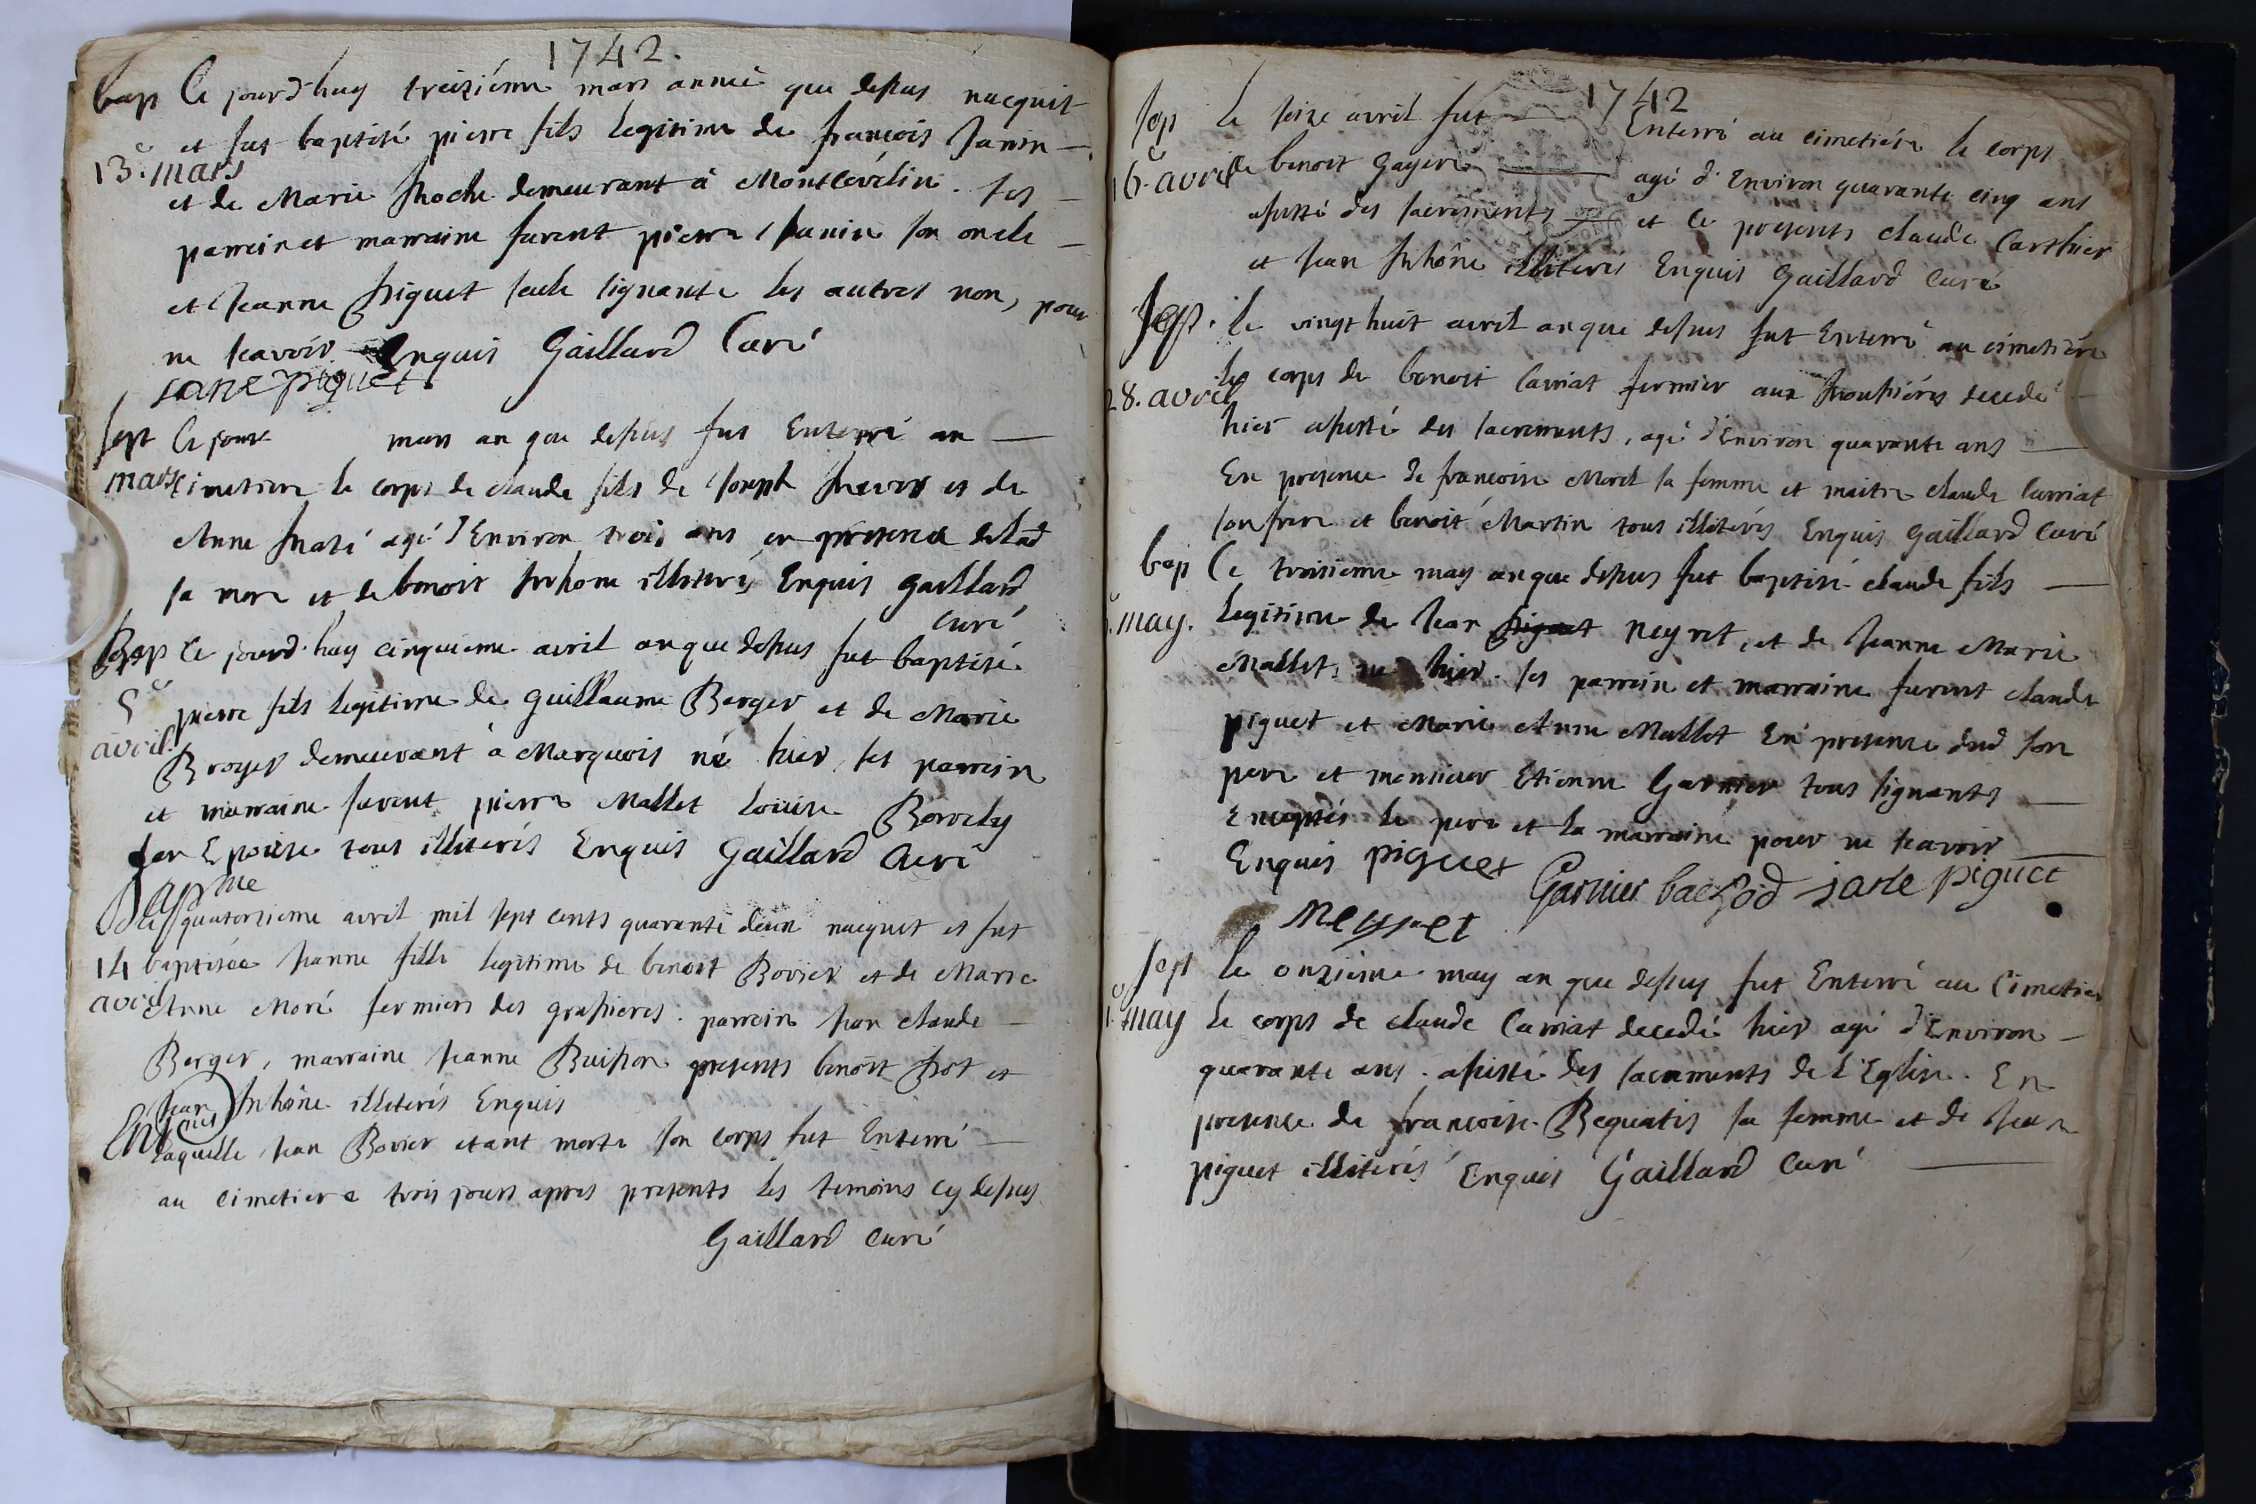 1742.
bap Ce jourd'huy treizième mars année que dessus nacquit
et fut baptisé pierre fils legitime de françois Janin
13.e mars
et de Marie Roche demeurant à Montcévelin. ses
parrein et marraine furent pierre Janin son oncle
et Jeanne piguet seule signante les autres non, pour
ne scavoir Enquis Gaillard Curé
jane piguet
sept Ce jour mars an que dessus fut Enterré au
mars cimetiere le corps de claude fils de Joseph et de
Anne agé d'Environ trois ans en presence de lad
sa mere et de benoit illiterés Enquis Gaillard
curé
Bap Ce jourd'huy cinquieme avril an que dessus fut baptisé
5e pierre fils legitime de guillaume Berger et de Marie
avril.
Broyer demeurant à Marquois né hier, ses parrein
et marraine furent pierre Mallet Louise Borrely
son Epouse tous illiterés Enquis Gaillard Curé
Baptme
Le quatorzieme avril mil sept cents quarante deux nacquit et fut
14 baptisée Jeanne fille legitime de benoit Bovier et de Marie
avril Anne Moré fermiers des grassieres. parrein Jean claude
Berger, marraine Jeanne Buisson presents benoit et
Jean illiterés Enquis
Enter
laquelle Jean Bovier etant morte son corps fut Enterré
au cimetiere trois jours apres presents les temoins cy dessus
Gaillard curé
1742
sep le seize avril fut Enterré au cimetiére le corps
16.e avril de benoit Gayer agé d'Environ quarante cinq ans
assisté des sacrements et ce presents claude Carthier
et Jean illiterés Enquis Gaillard Curé
Sep. le vingt huit avril an que dessus fut Enterré au cimetière
le corps de benoit Carriat fermier aux decedé
28. avril
hier assisté des sacrements, agé d'Environ quarante ans
En presence de francoise Morel sa femme et maitre claude Carriat
son frere et benoit Martin tous illiterés Enquis Gaillard Curé
bap Ce troisieme may an que dessus fut baptisé claude fils
may. legitime de Jean piguet neyret, et de Jeanne Marie
Mallet, né hier. ses parrein et marraine furent claude
piguet et Marie Anne Mallet En presence dud son
pere et monsieur Etienne Garnier tous signants
Exceptés le pere et la marraine pour ne scavoir
Enquis piguet Garnier jane piguet
neyret
sept le onzieme may an que dessus fut Enterré au Cimetier
may le corps de claude Carriat decedé hier agé d'Environ
quarante ans. assisté des sacrements de L'Eglise. En
presence de françoise Bequatis sa femme et de Jean
piguet illiterés Enquis Gaillard Curé